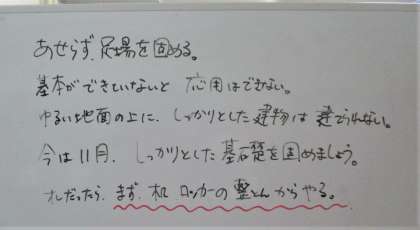 あせらず、足場を固める。
基本ができていないと 応用はできない。
ゆるい地面の上に、しっかりとした建物は建てられない。
今は11月、しっかりとした基礎を固めましょう。
オレだったら、まず、机 ロッカーの整とんからやる。